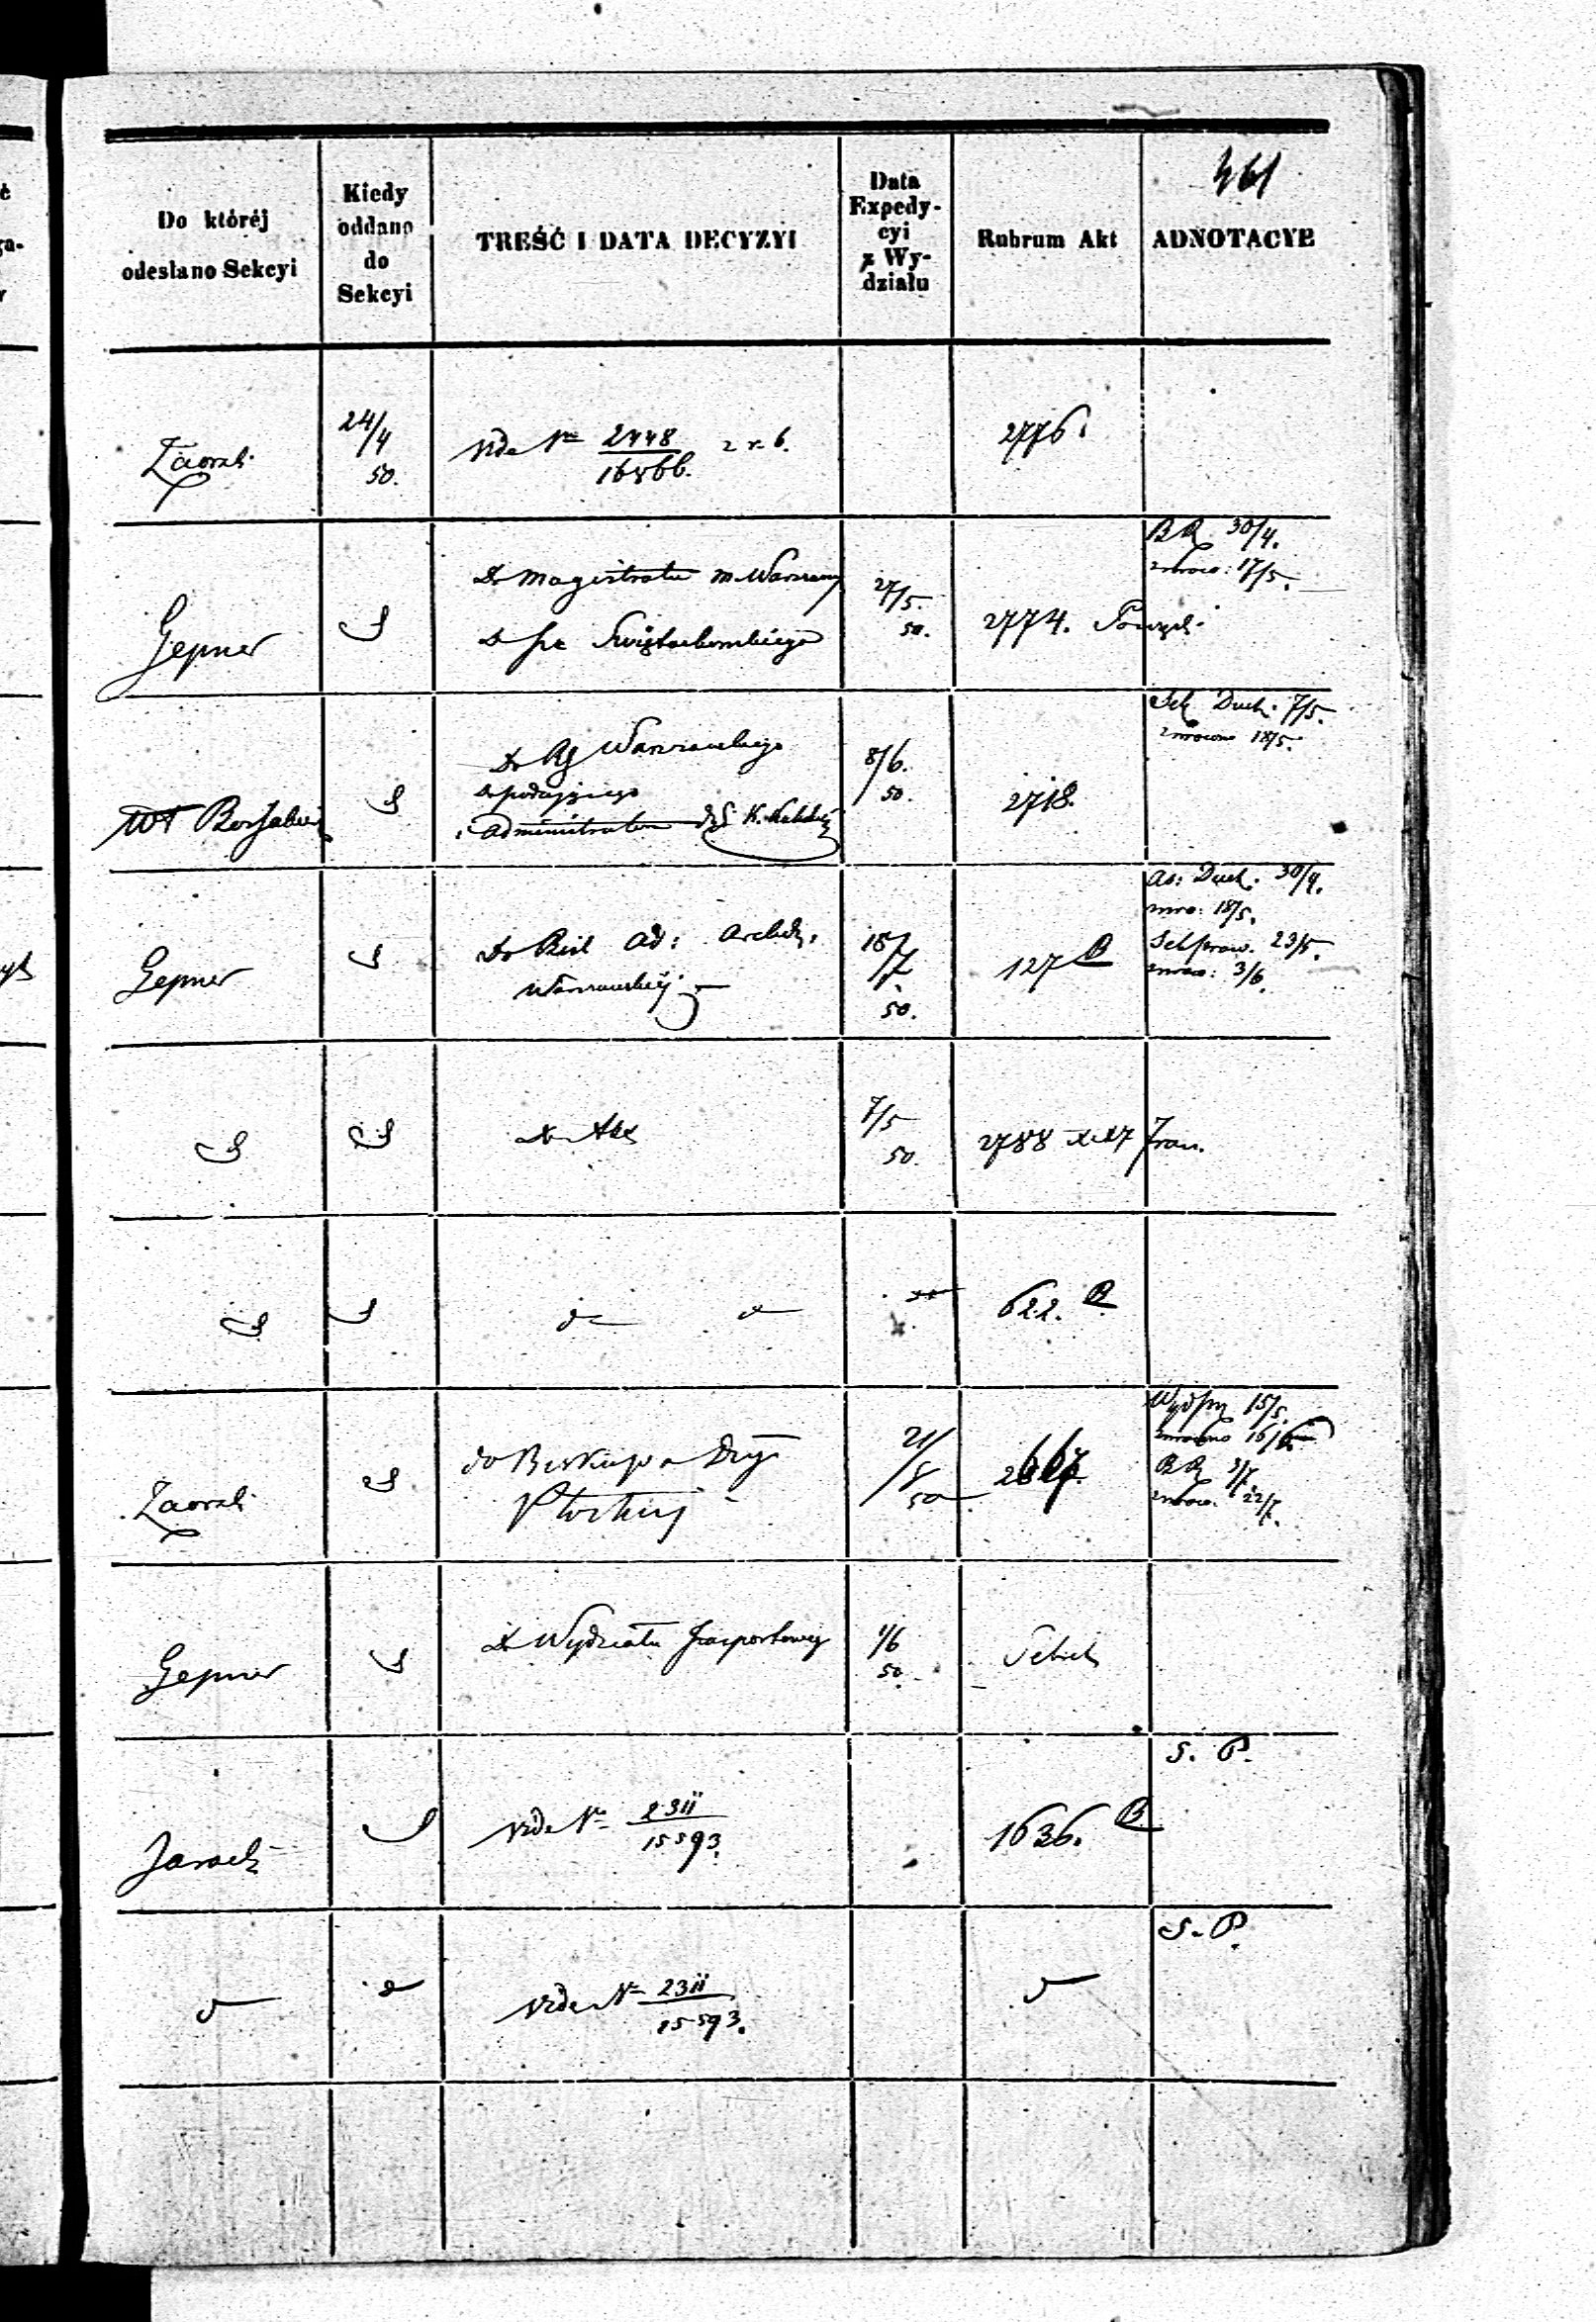 461
Do któréj
odesłano Sekcyi
Kiedy
oddano
do
Sekcyi
TREŚĆ I DATA DECYZYI
Data
Expedy-
cyi
z Wy-
działu
Rubrum Akt
ADNOTACYE
Zaorski
24/4
50.
Vide No 2448
16866.
2776.
Gepner
Do Magistratu m. Warszawy
Do
Świętochowskiego
27/5.
50.
2774.
BR 30/4.
zwroco: 17/5.
Do RG Warszawskiego
podającego
Administratora
8/6.
50.
2718.
Sek Duch. 7/5.
zwrocono 18/5.
Gepner
Do Ad: Archid:
Warszawskiéj
18/7
50.
127 B
As: Duch. 30/4.
zwro: 18/5.
Sek praw. 23/5.
zwroco: 3/6.
Do Akt
7/5
50.
2788
622. B
Zaorski
do Biskupa Dyj
Płockiej
21/8
50
2667.
15/5.
zwrocono 16/6
BR 3/7.
zwroco. 22/7.
Gepner
Do Wydziału Paszportowego
1/6
50.
Jarocki
Vide No 2311
15593.
1636. B
S. P.
Vide No 2311
15593.
S. P.